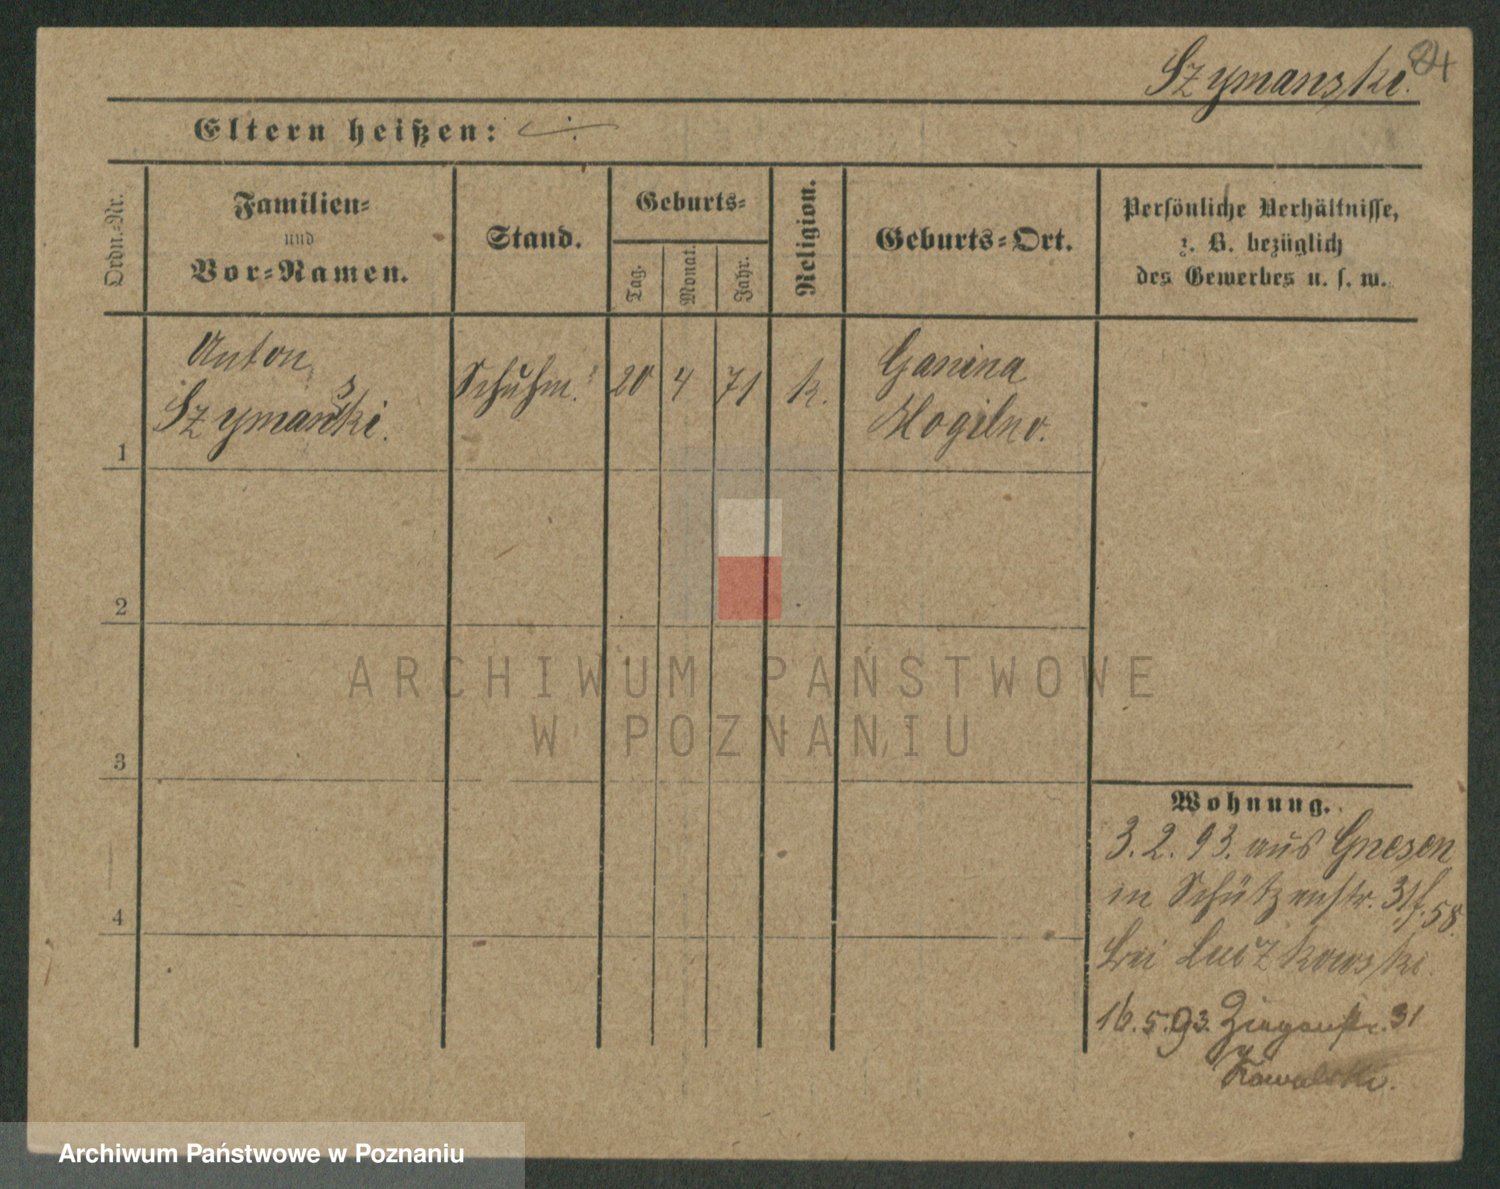 Szymanski. 24
Eltern heißen:
Ordn.-Nr.
Familien-
und
Vor-Namen.
Stand.
Geburts-
Tag.
Monat.
Jahr.
Religion.
Geburts-Ort.
Persönliche Verhältnisse,
z. B. bezüglich
des Gewerbes u. s. w.
Anton
Szymanski.
Schuhm.
20
4
71
k.
Ganina
Mogilno.
1
2
3
4
ARCHIWUM PAŃSTWOWE
W POZNANIU
Wohnung.
3.2.93. aus Gnesen
in Schützenstr. 31
58.
bei
16.5.93. Ziegenstr. 31
Kowalski.
Archiwum Państwowe w Poznaniu